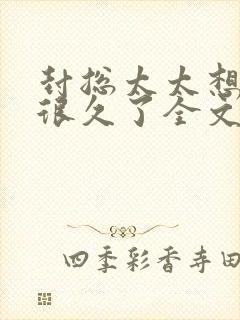 封总太太想
很久了全文
四季彩香寺田